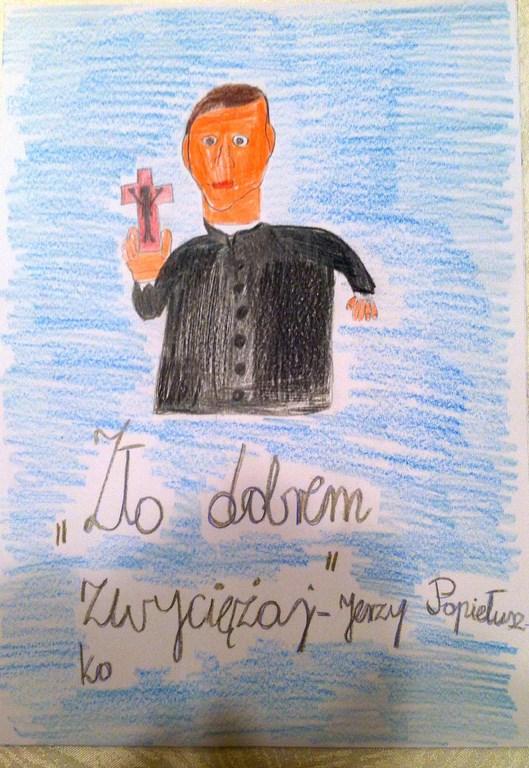 „Zło dobrem
zwyciężaj"- Jerzy Popiełusz-
ko